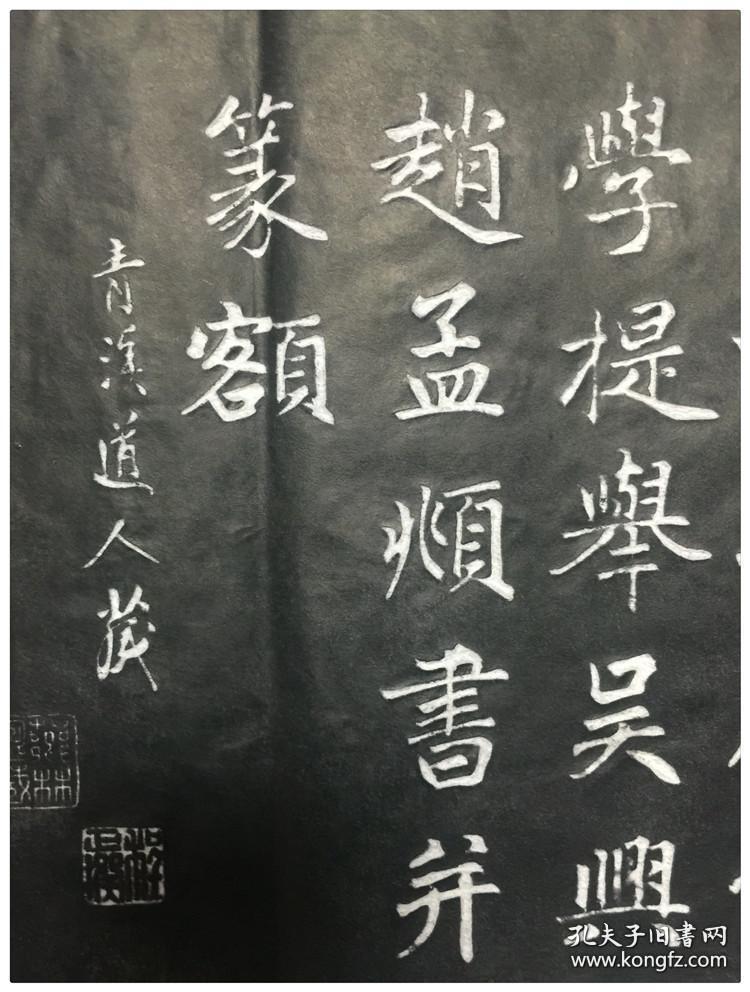 學提舉吳興
趙孟頫書并
篆額
青溪道人藏
孔夫子旧书网
www.kongfz.com